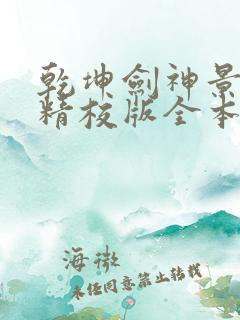 乾坤劍神景
精校版全本
海微
未经同意禁止转载